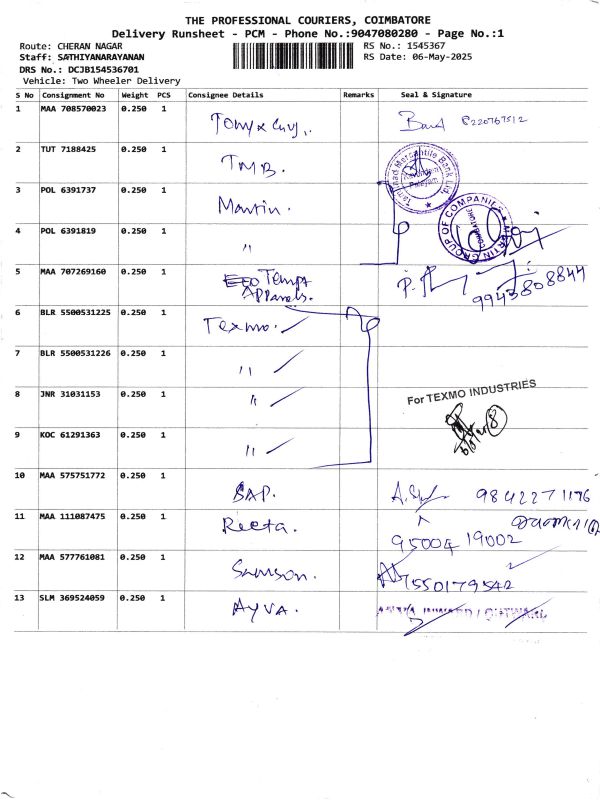 THE PROFESSIONAL COURIERS, COIMBATORE
Delivery Runsheet - PCM - Phone No.:9047080280 - Page No.:1
Route: CHERAN NAGAR
RS No.: 1545367
Staff: SATHIYANARAYANAN
RS Date: 06-May-2025
DRS No.: DCJB154536701
Vehicle: Two Wheeler Delivery
S No Consignment No Weight PCS Consignee Details Remarks Seal & Signature
1 MAA 708570023 0.250 1
2 TUT 7188425 0.250 1 TMB.
Tamilnad Mercantile Bank Ltd.
3 POL 6391737 0.250 1 Martin.
MARTIN GROUP OF COMPANIES
COIMBATORE
4 POL 6391819 0.250 1 "
5 MAA 707269160 0.250 1 Temps
Apparels.
9943808844
6 BLR 5500531225 0.250 1 Texmo.
7 BLR 5500531226 0.250 1 "
8 JNR 31031153 0.250 1 "
For TEXMO INDUSTRIES
9 KOC 61291363 0.250 1 "
10 MAA 575751772 0.250 1 BAP. 9842271176
11 MAA 111087475 0.250 1 Reeta.
95004 19002
12 MAA 577761081 0.250 1 Samson.
7550179542
13 SLM 369524059 0.250 1 AYVA.